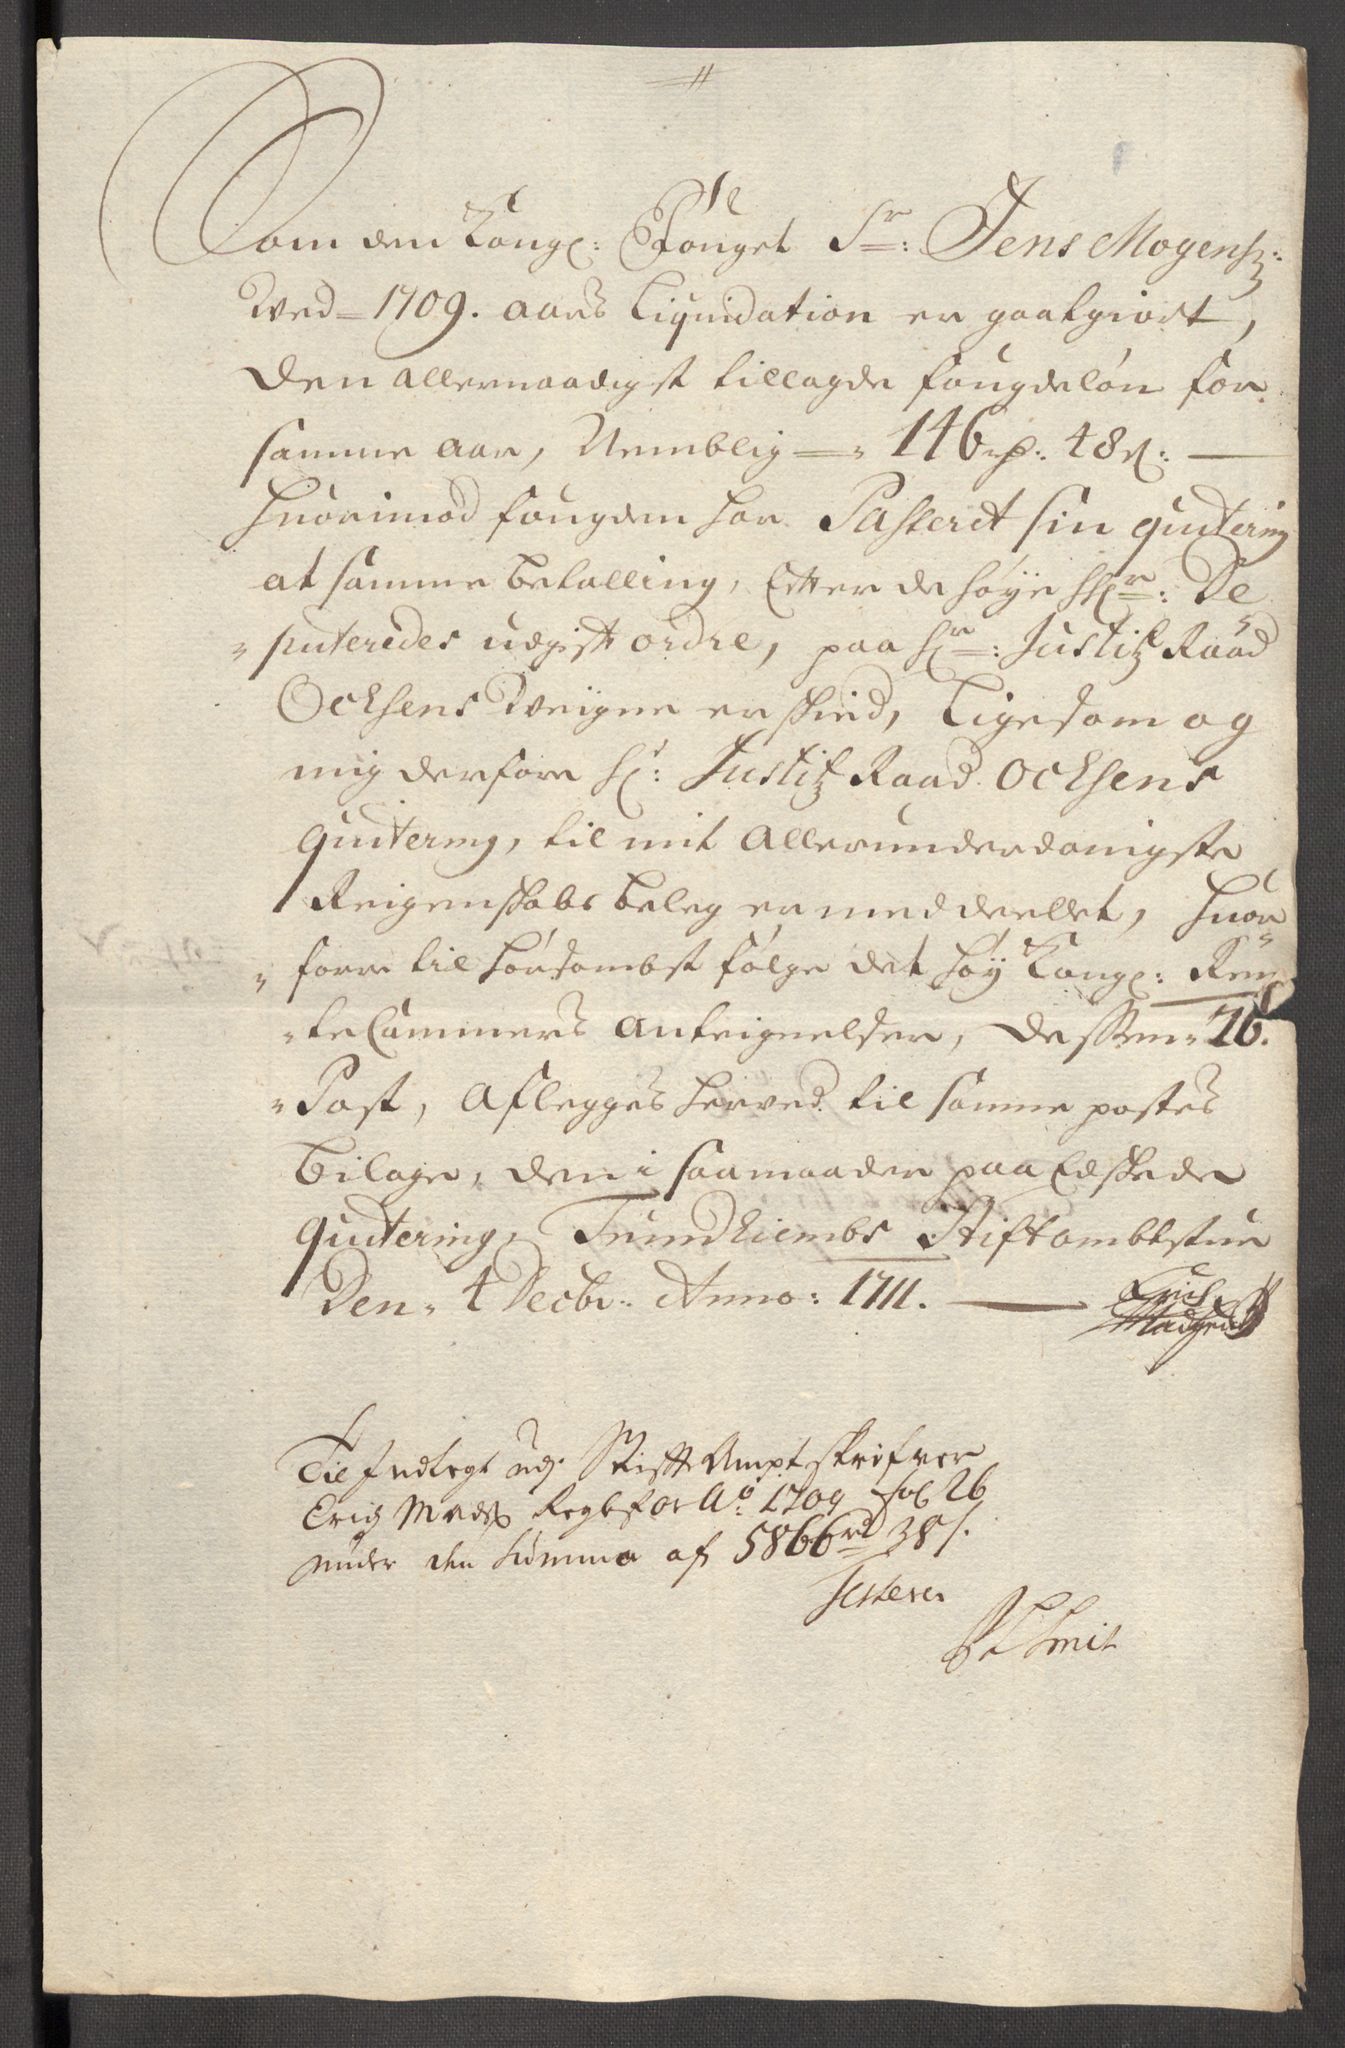 Som den Kongl: Fouget Sr: Jens Mogensz:
Wed 1709. aars Liquidation er gaatgiort,
den allernaadigst tillagde fougdeløn for
samme aar, Nemblig 146 rp: 48 s:
huorimod fougden har Passeret sin quitering
at samme betalling, Efter de høye Hhr: De
puteredes udgift ordre, paa Hr: Justitz Raad
Ochsens Weigne er skeed, Ligesom og
mig derfore Hr: Justitz Raad Ochsens
quitering, til mit allerunderdanigste
Reigenskabs beleg er meddeellet, huor
forre til hørsambst følge det høy Kongl: Ren
te Cammers Anteignelser, dessen 26.
Post, Aflegges herved til samme postes
bilage, den i saamaader paa Edskede
quitering, Trundhiembs Stiftambtstue
Den 4 Decbr: Anno: 1711. Erich
Madsen
Til Indtegt udj Stifft Ampt skrifver
Erich Mads: Regb: for Ao 1709 fol 26
under den Summa af 5866 rd 38 s.
Testerer
Smit